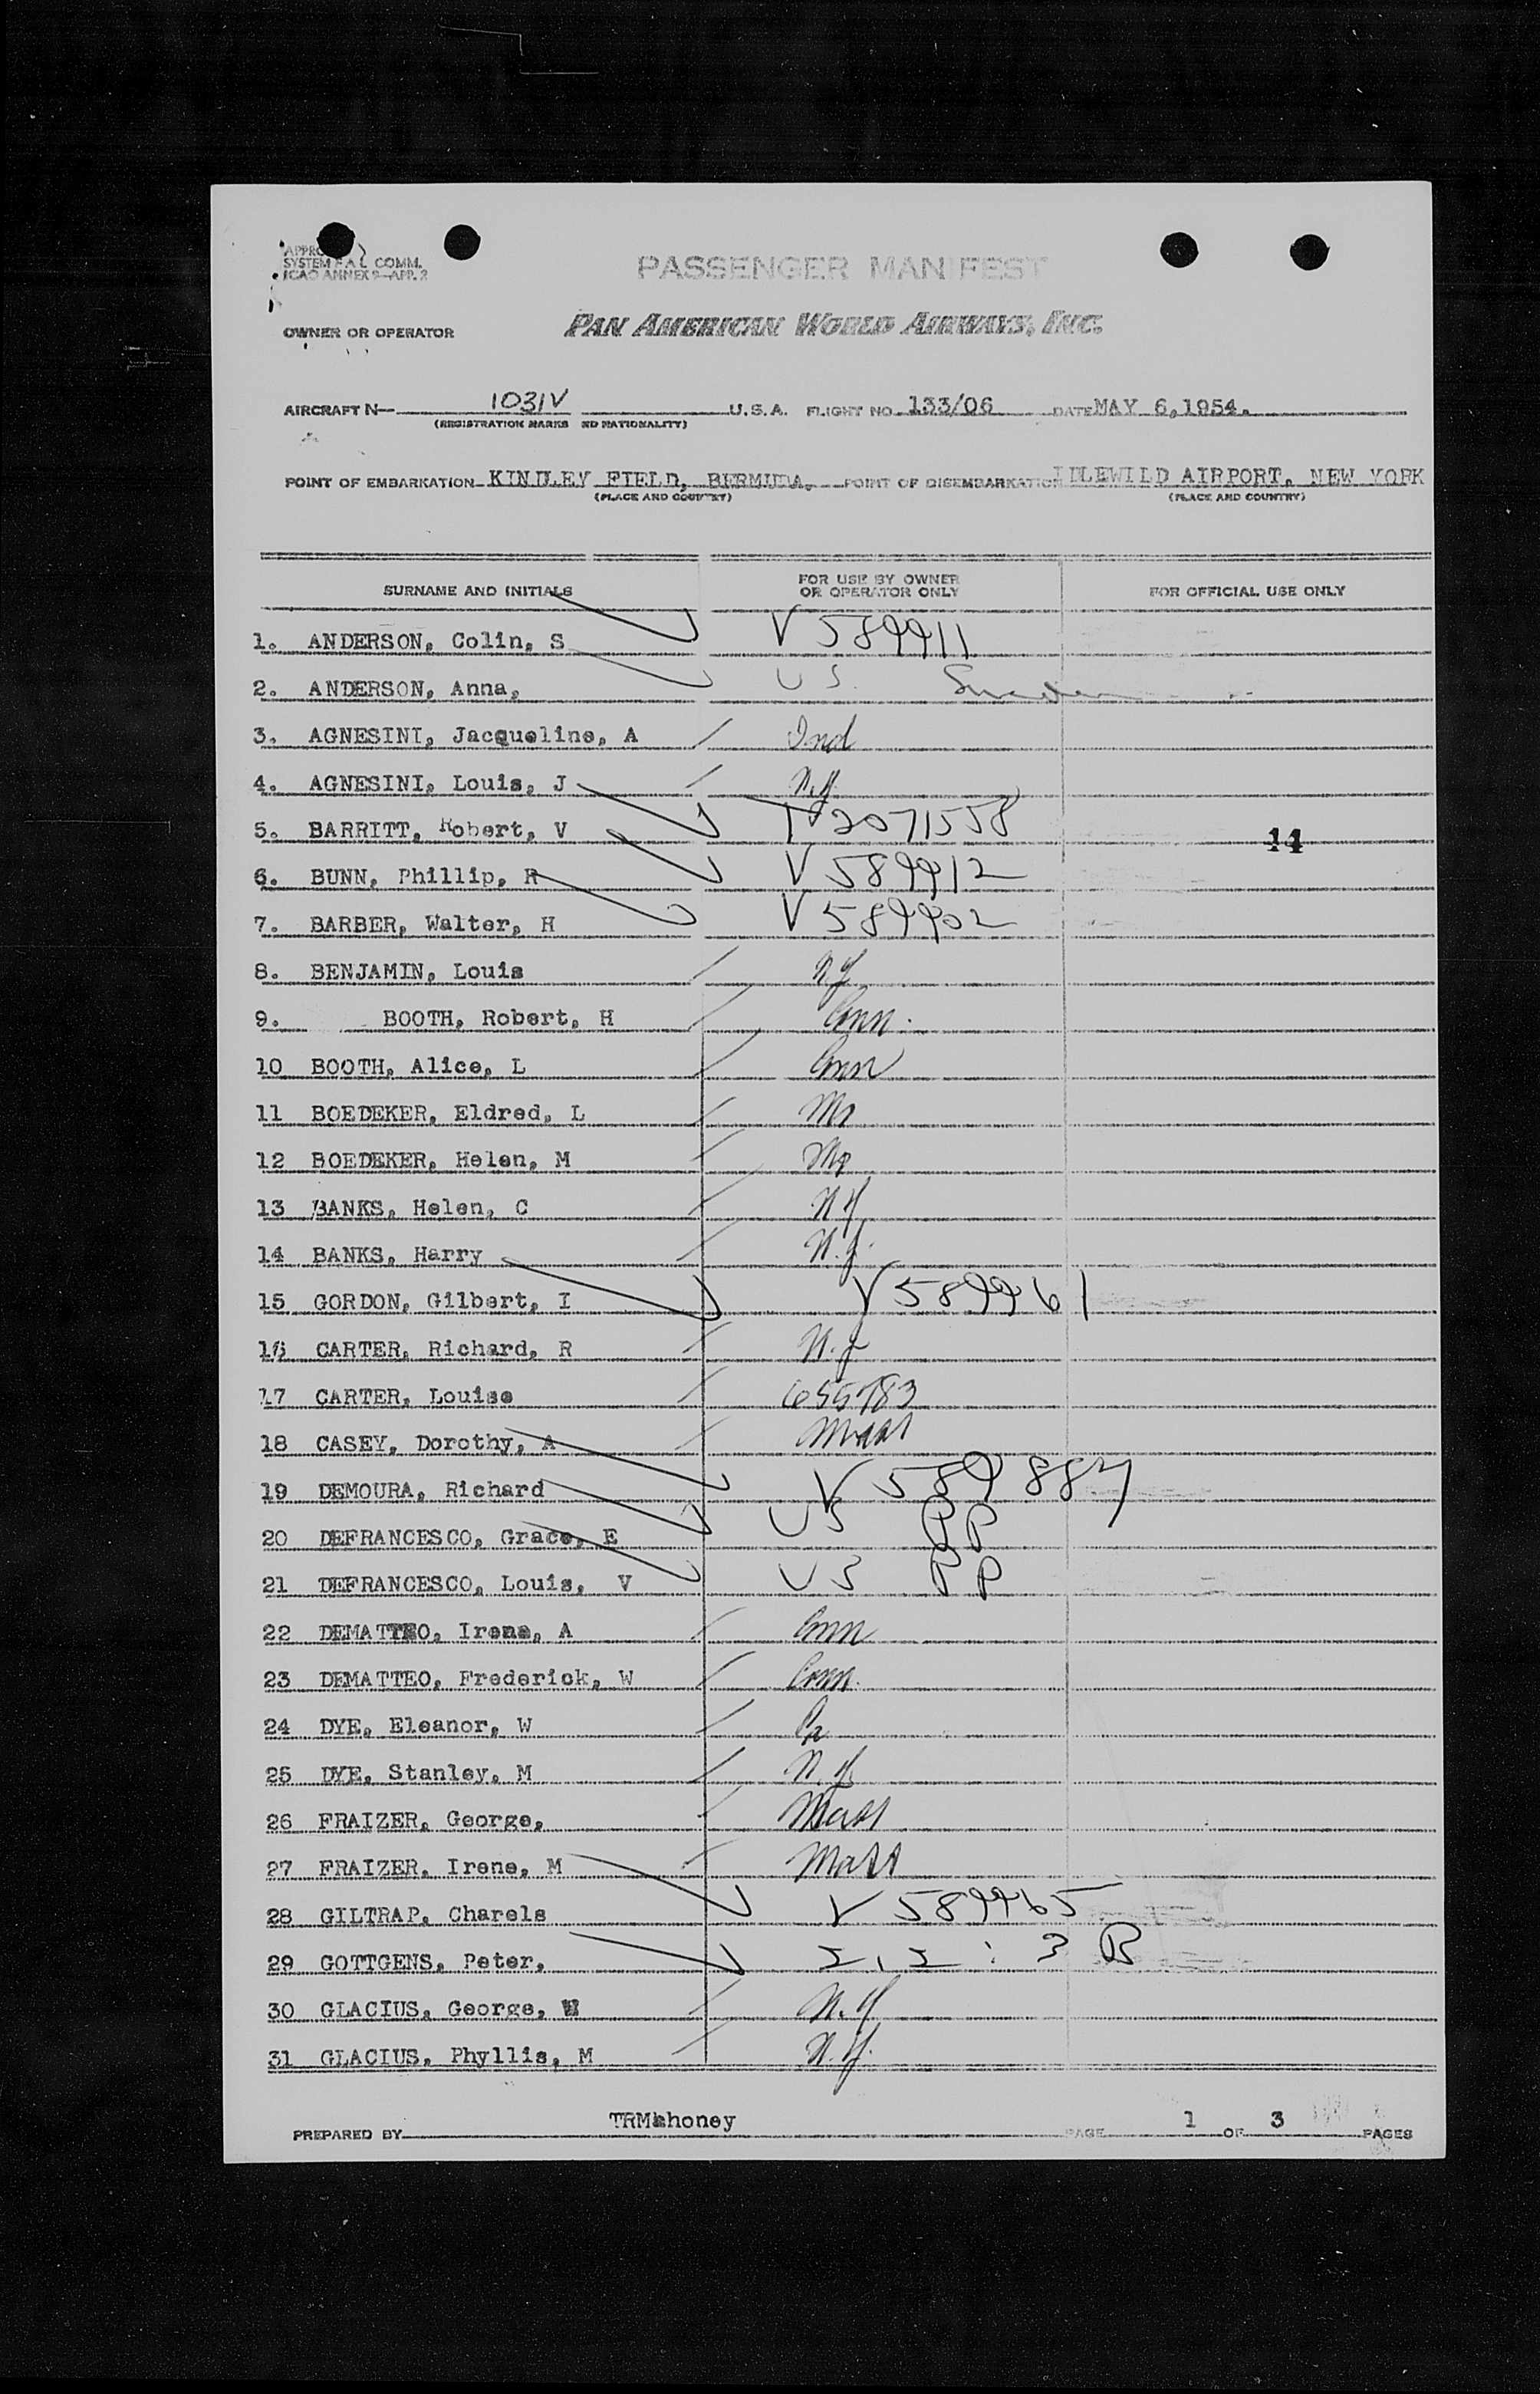 SYSTEM F.A.L COMM.
ICAO ANNEX 9—APP. 2
PASSENGER MANIFEST
OWNER OR OPERATOR PAN AMERICAN WORLD AIRWAYS, INC.
AIRCRAFT N— 1031V U.S.A. FLIGHT NO. 133/06 DATE MAY 6,1954.
(REGISTRATION MARKS ND NATIONALITY)
POINT OF EMBARKATION KINDLEY FIELD, BERMUDA. POINT OF DISEMBARKATION IDLEWILD AIRPORT, NEW YORK
(PLACE AND COUNTRY) (PLACE AND COUNTRY)
SURNAME AND INITIALS FOR USE BY OWNER OR OPERATOR ONLY FOR OFFICIAL USE ONLY
1. ANDERSON, Colin, S V 589911
2. ANDERSON, Anna, US. Sweden
3. AGNESINI, Jacqueline, A Ind
4. AGNESINI, Louis, J N.Y.
5. BARRITT, Robert, V V2071558 14
6. BUNN, Phillip, R V 589912
7. BARBER, Walter, H V 589902
8. BENJAMIN, Louis NY
9. BOOTH, Robert, H Conn.
10 BOOTH, Alice, L Conn
11 BOEDEKER, Eldred, L Mo
12 BOEDEKER, Helen, M Mo
13 BANKS, Helen, C NY
14 BANKS, Harry N.Y.
15 GORDON, Gilbert, I V589961
16 CARTER, Richard, R N.J
17 CARTER, Louise 655783
18 CASEY, Dorothy, A Mass
19 DEMOURA, Richard V 589887
20 DEFRANCESCO, Grace, E US PP
21 DEFRANCESCO, Louis, V US PP
22 DEMATTEO, Irene, A Conn
23 DEMATTEO, Frederick, W Conn.
24 DYE, Eleanor, W Pa
25 DYE, Stanley, M N.Y.
26 FRAIZER, George, Mass
27 FRAIZER, Irene, M Mass
28 GILTRAP, Charels V 589965
29 GOTTGENS, Peter,
30 GLACIUS, George, W N.Y
31 GLACIUS, Phyllis, M N.Y.
PREPARED BY TRMahoney PAGE 1 OF 3 PAGES